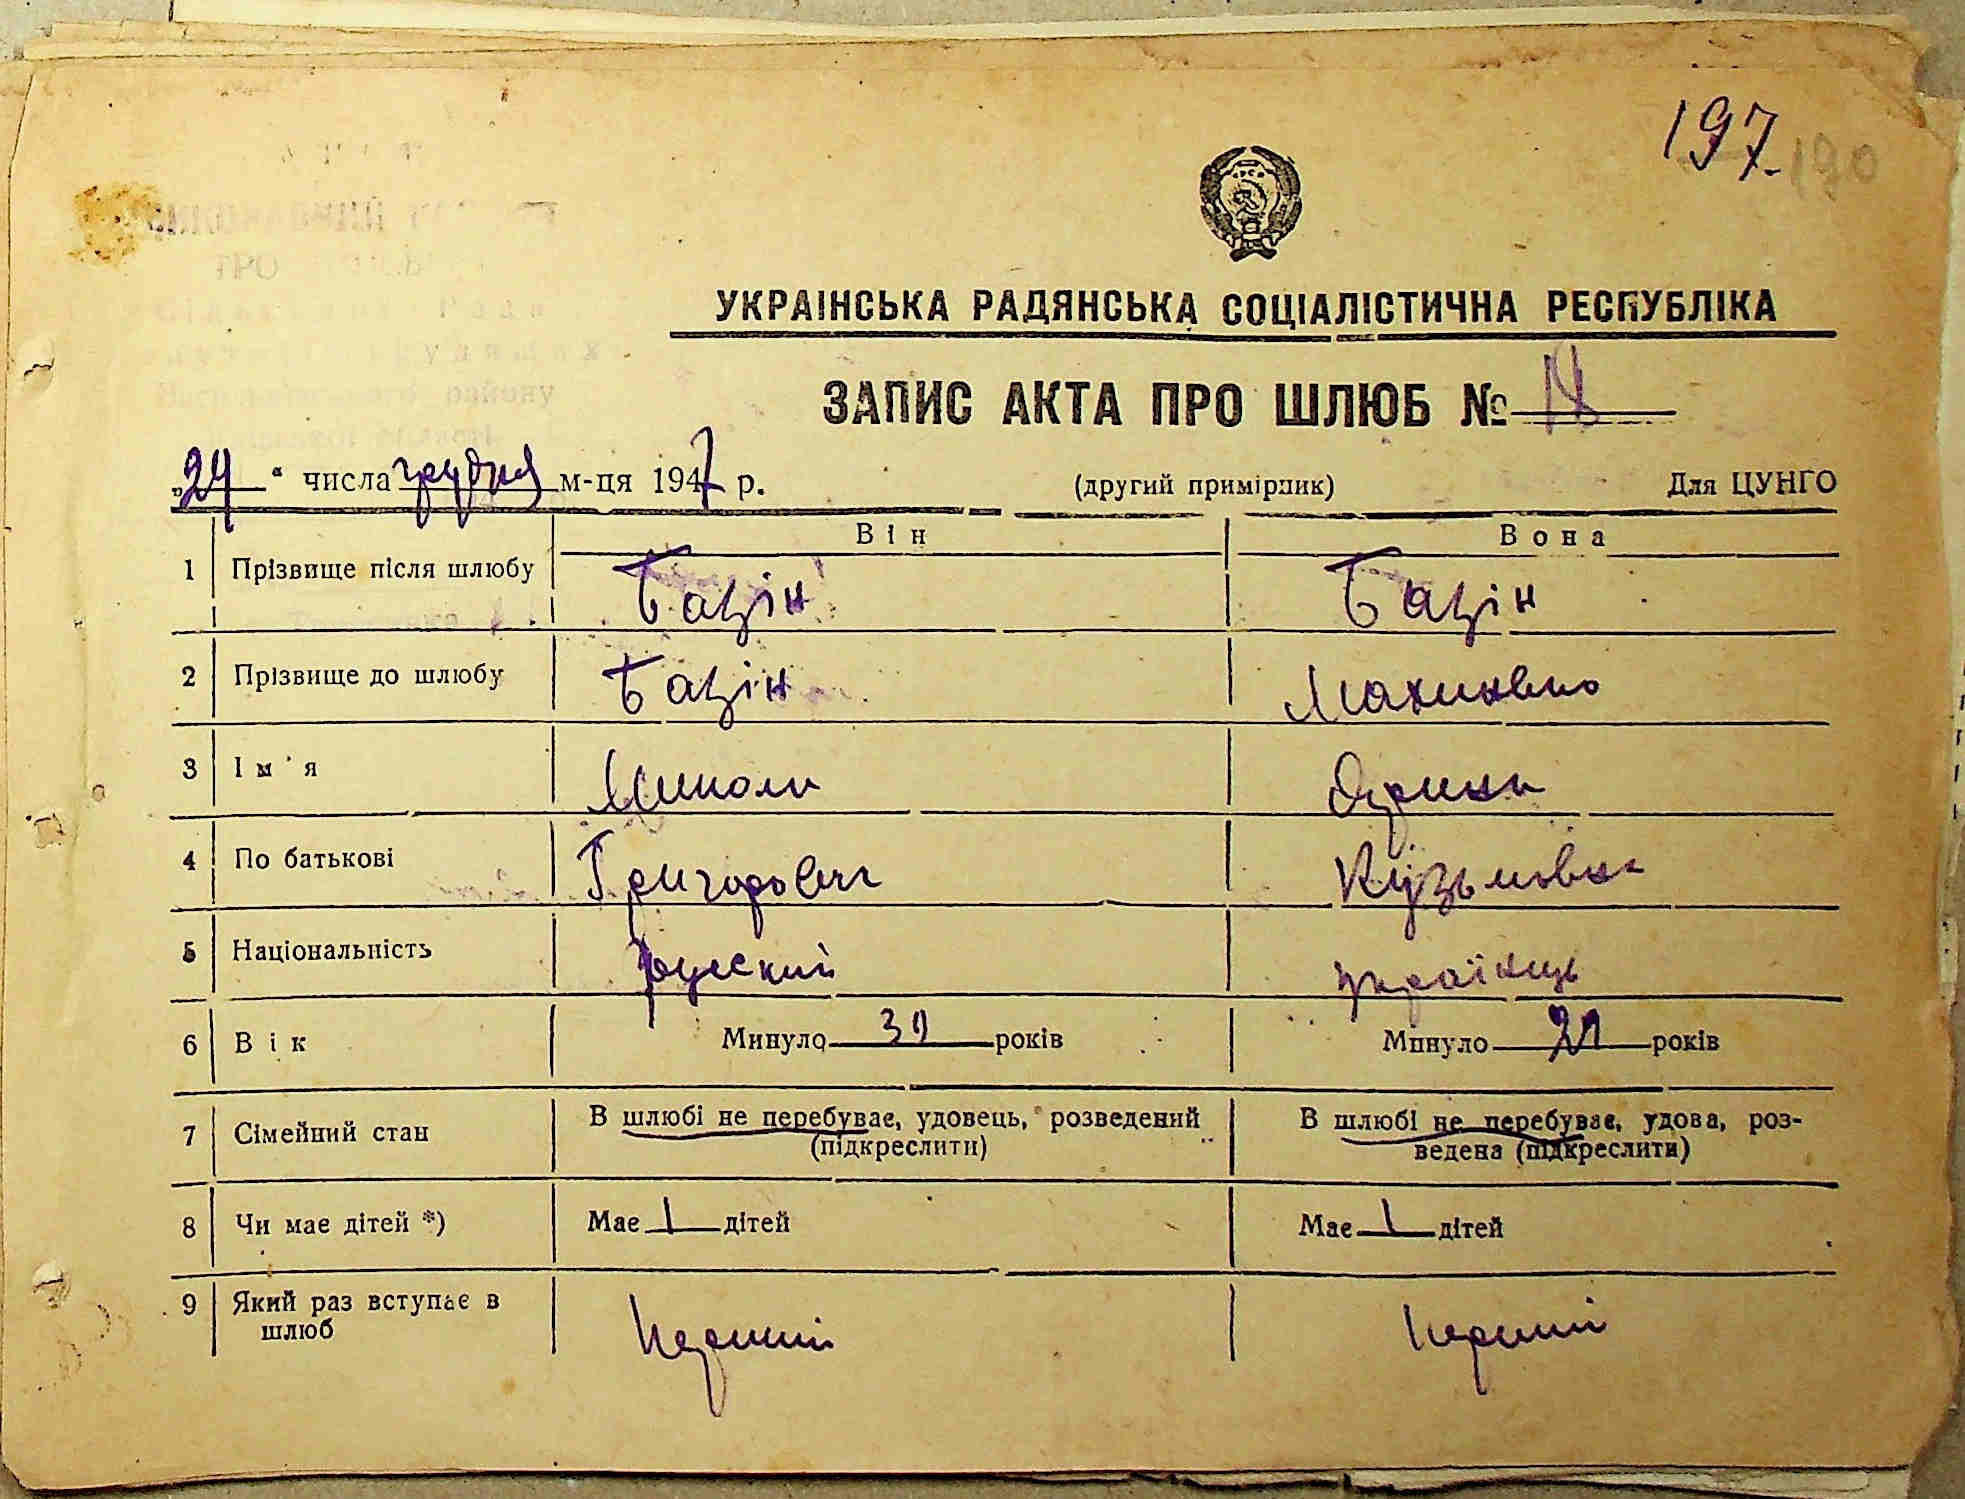 197. 190
УКРАІНСЬКА РАДЯНСЬКА СОЦІАЛІСТИЧНА РЕСПУБЛІКА
ЗАПИС АКТА ПРО ШЛЮБ №
„24“ числа грудня м-ця 1947 р. (другий примірник) Для ЦУНГО
Він Вона
1 Прізвище після шлюбу Бацін Бацін
2 Прізвище до шлюбу Бацін
3 Ім'я Микола Орина
4 По батькові Григорович Кузьмовна
5 Національність руский україць
6 Вік Минуло років Минуло 21 років
7 Сімейний стан В шлюбі не перебуває, удовець, розведений (підкреслити) В шлюбі не перебуває, удова, роз-
ведена (підкреслити)
8 Чи має дітей *) Має 1 дітей Має 1 дітей
9 Який раз вступає в Перший Перший
шлюб